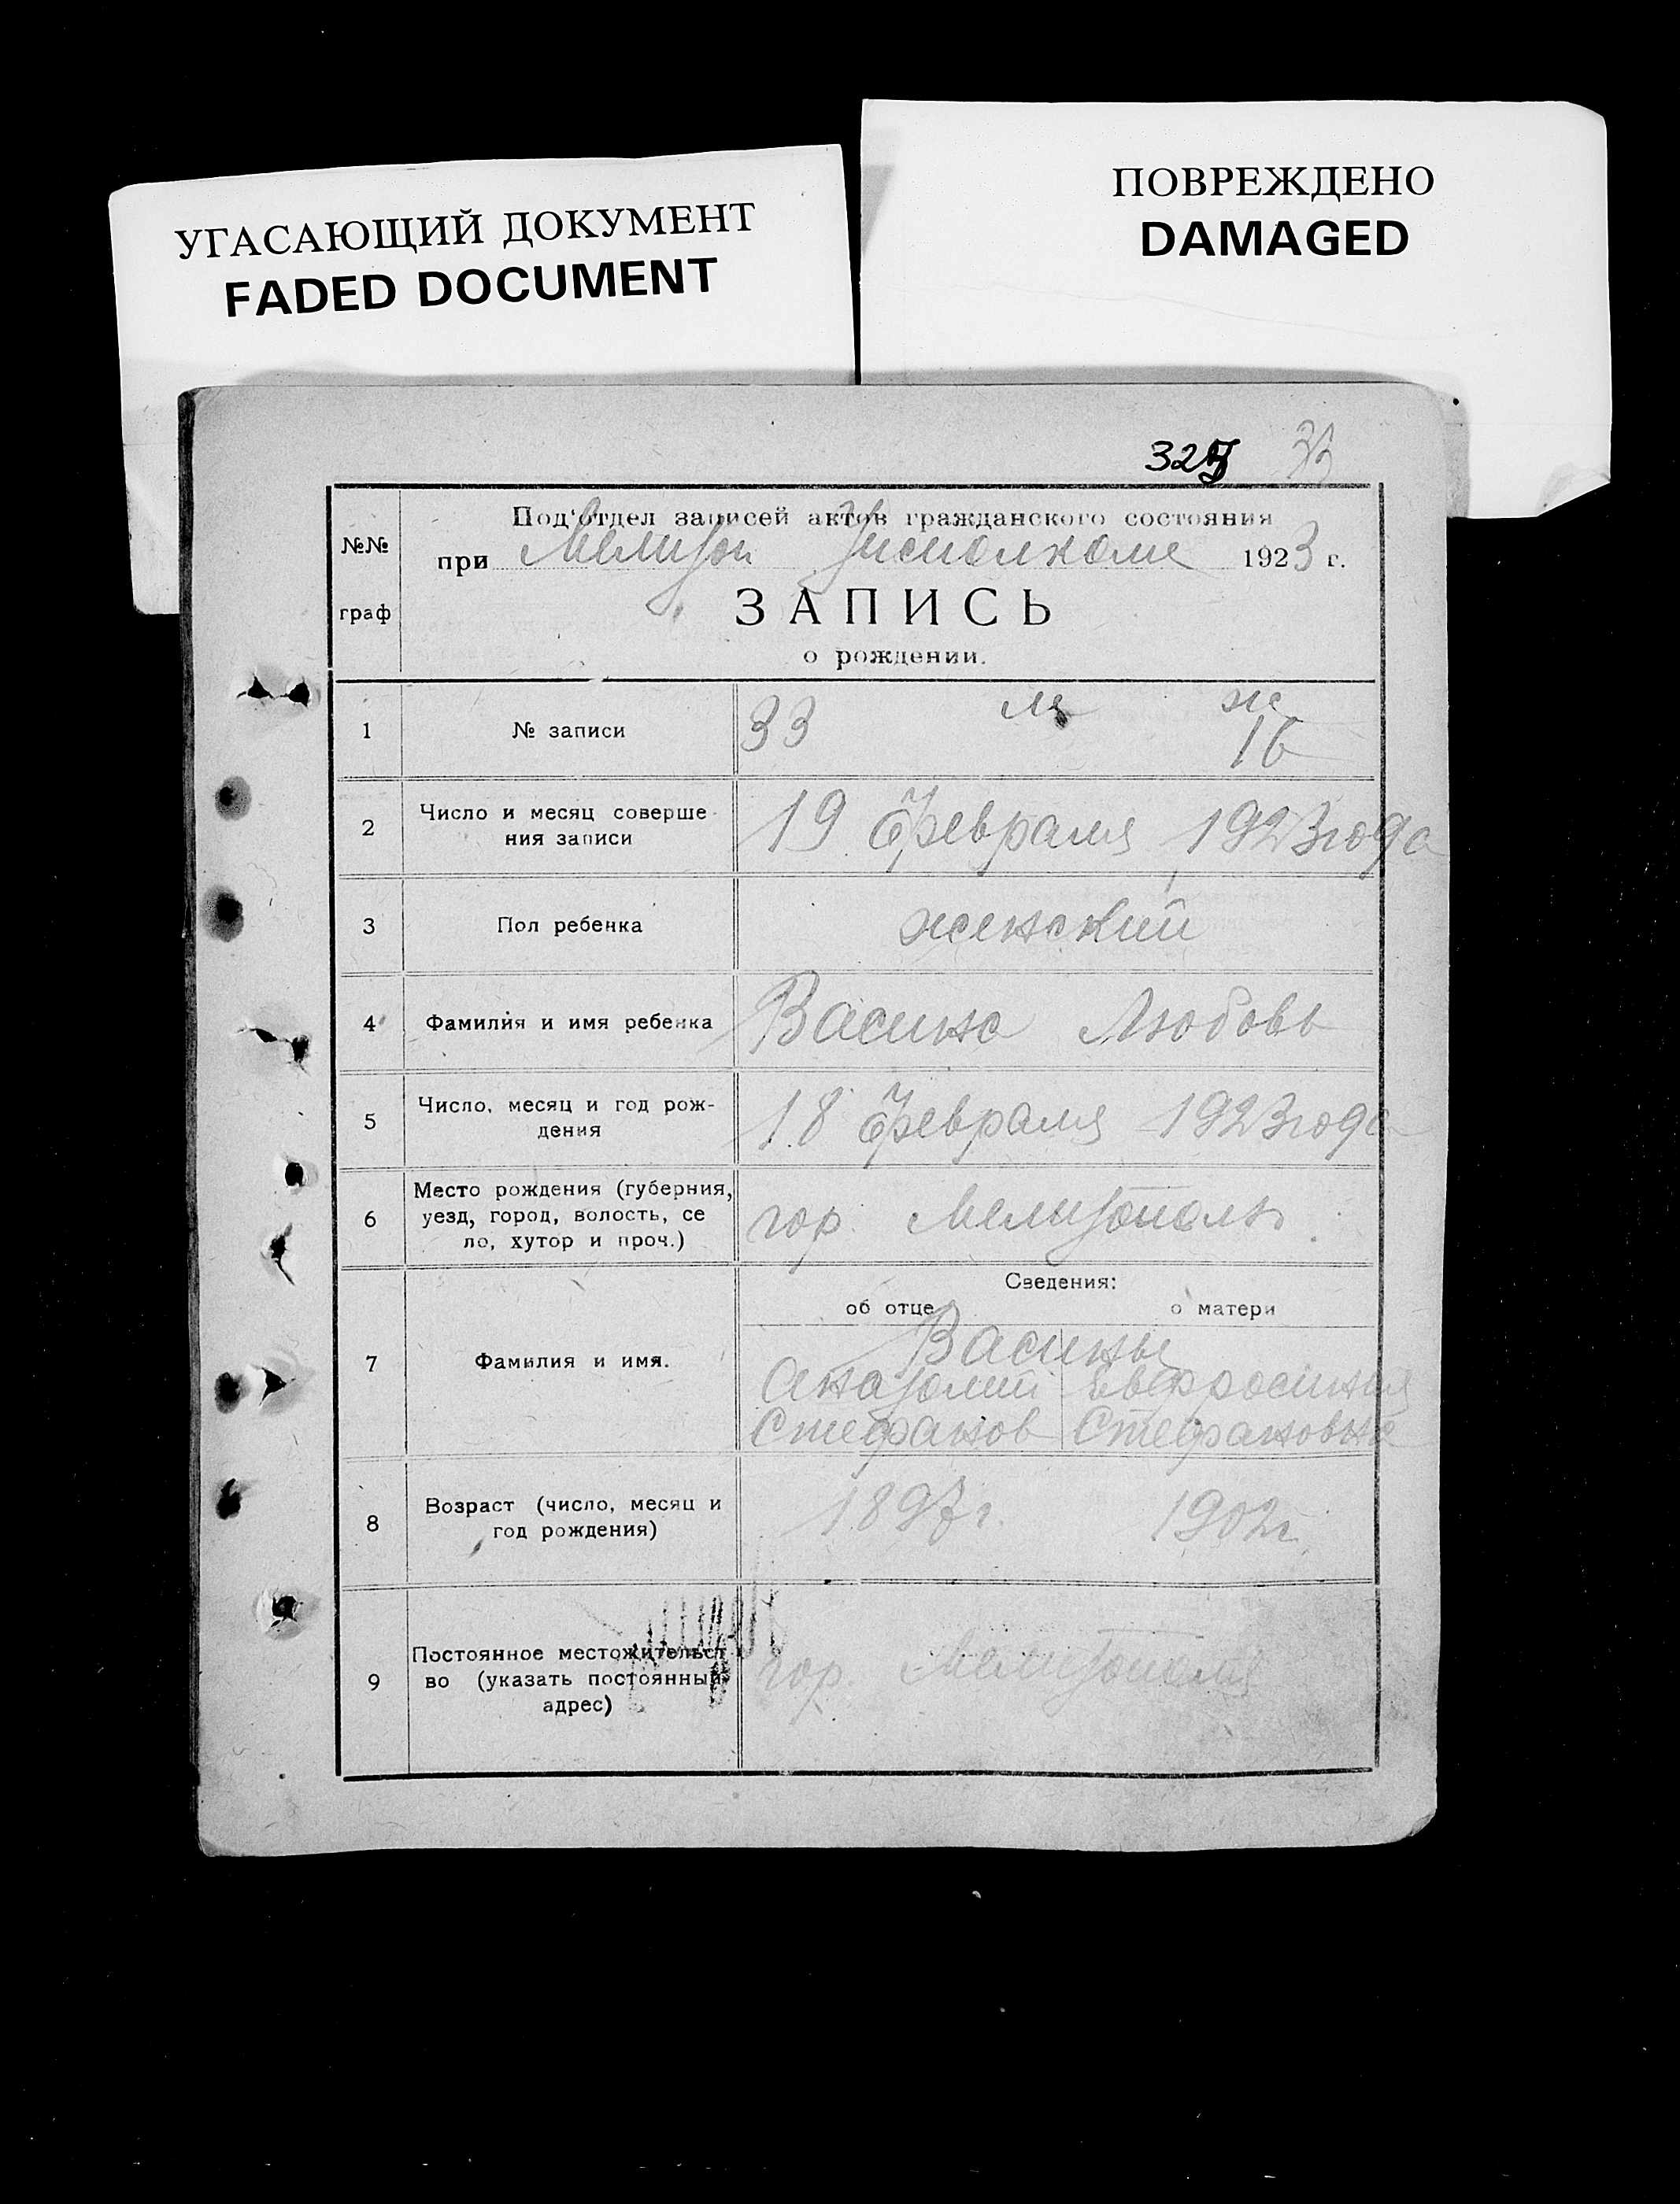 УГАСАЮЩИЙ ДОКУМЕНТ
FADED DOCUMENT
ПОВРЕЖДЕНО
DAMAGED
33
№№
граф
Под'отдел записей актов гражданского состояния
при Мелитоп Уисполкоме 1923 г.
ЗАПИСЬ
о рождении.
1 № записи 33 м ж
16
2 Число и месяц соверше
ния записи
19 Февраля 1923 года
3 Пол ребенка женский
4 Фамилия и имя ребенка Васина Любовь
5 Число, месяц и год рож-
дения
18 Февраля 1923 года
6 Место рождения (губерния,
уезд, город, волость, се
ло, хутор и проч.)
гор. Мелитополь
Сведения:
об отце о матери
7 Фамилия и имя.
Васины
Анатолий Евфросиния
Стефанов Стефановна
8 Возраст (число, месяц и
год рождения)
1897 г. 1902 г.
9 Постоянное местожительст
во (указать постоянный
адрес)
гор. Мелитополь